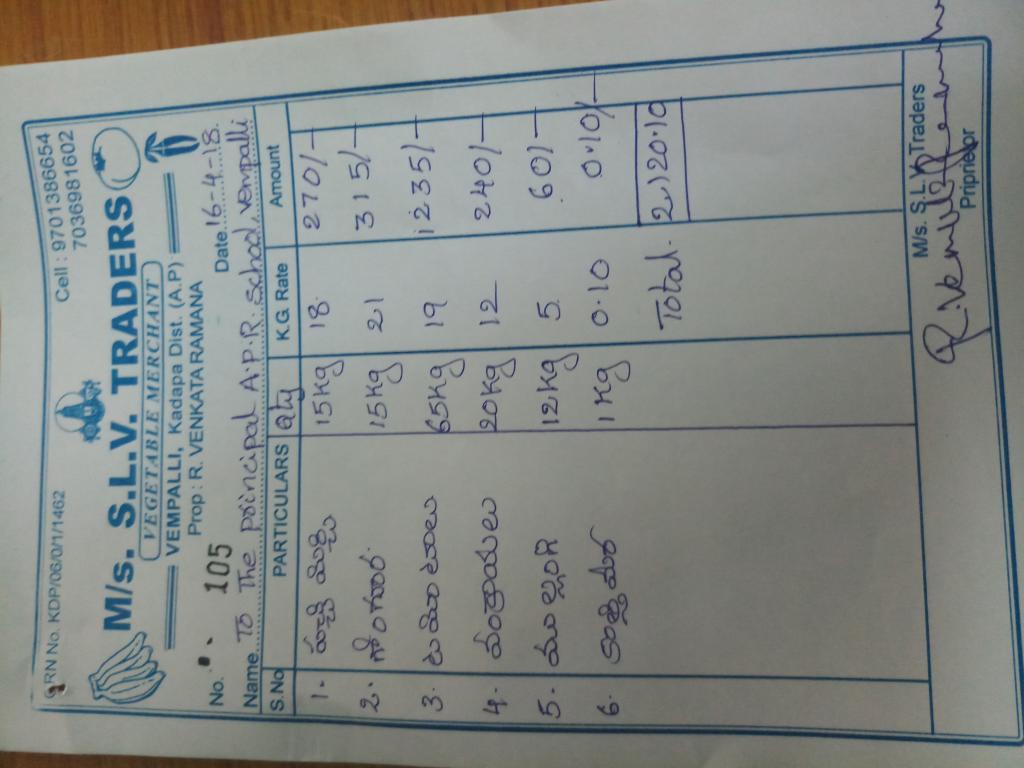 TRN No. KDP/06/0/1/1462 Cell : 9701386654
7036981602
M/s. S.L.V. TRADERS
VEGETABLE MERCHANT
VEMPALLI, Kadapa Dist. (A.P)
Prop : R. VENKATA RAMANA
No. 105 Date 16-4-18.
Name To The principal A.P.R. school, vempalli
S.No PARTICULARS Qty K.G. Rate Amount
1. 15Kg 18. 270/-
2. గోంగూర. 15Kg 21 315/-
3. టమాటాలు 65Kg 19 1235/-
4. 20Kg 12 240/-
5. ముల్లంగి 12Kg 5 60/-
6. 1Kg 0.10 0.10/-
Total. 2,120.10
M/s. S.L.V. Traders
Priprietor